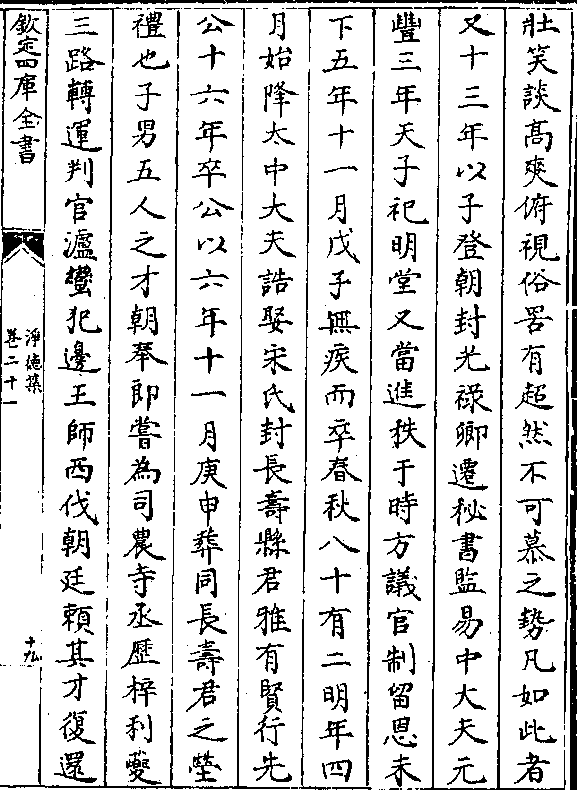 壯笑談髙爽俯視俗累有超然不可慕之勢凡如此者
又十三年以子登朝封光禄卿遷秘書監易中大夫元
豐三年天子祀明堂又當進秩于時方議官制留恩未
下五年十一月戊子無疾而卒春秋八十有二明年四
月始降太中大夫誥娶宋氏封長壽縣君雅有賢行先
公十六年卒公以六年十一月庚申葬同長壽君之塋
禮也子男五人之才朝奉郎嘗為司農寺丞歴梓利夔
三路轉運判官瀘蠻犯邊王師西伐朝廷賴其才復還
欽定四庫全書
淨德集
卷二十一
十九